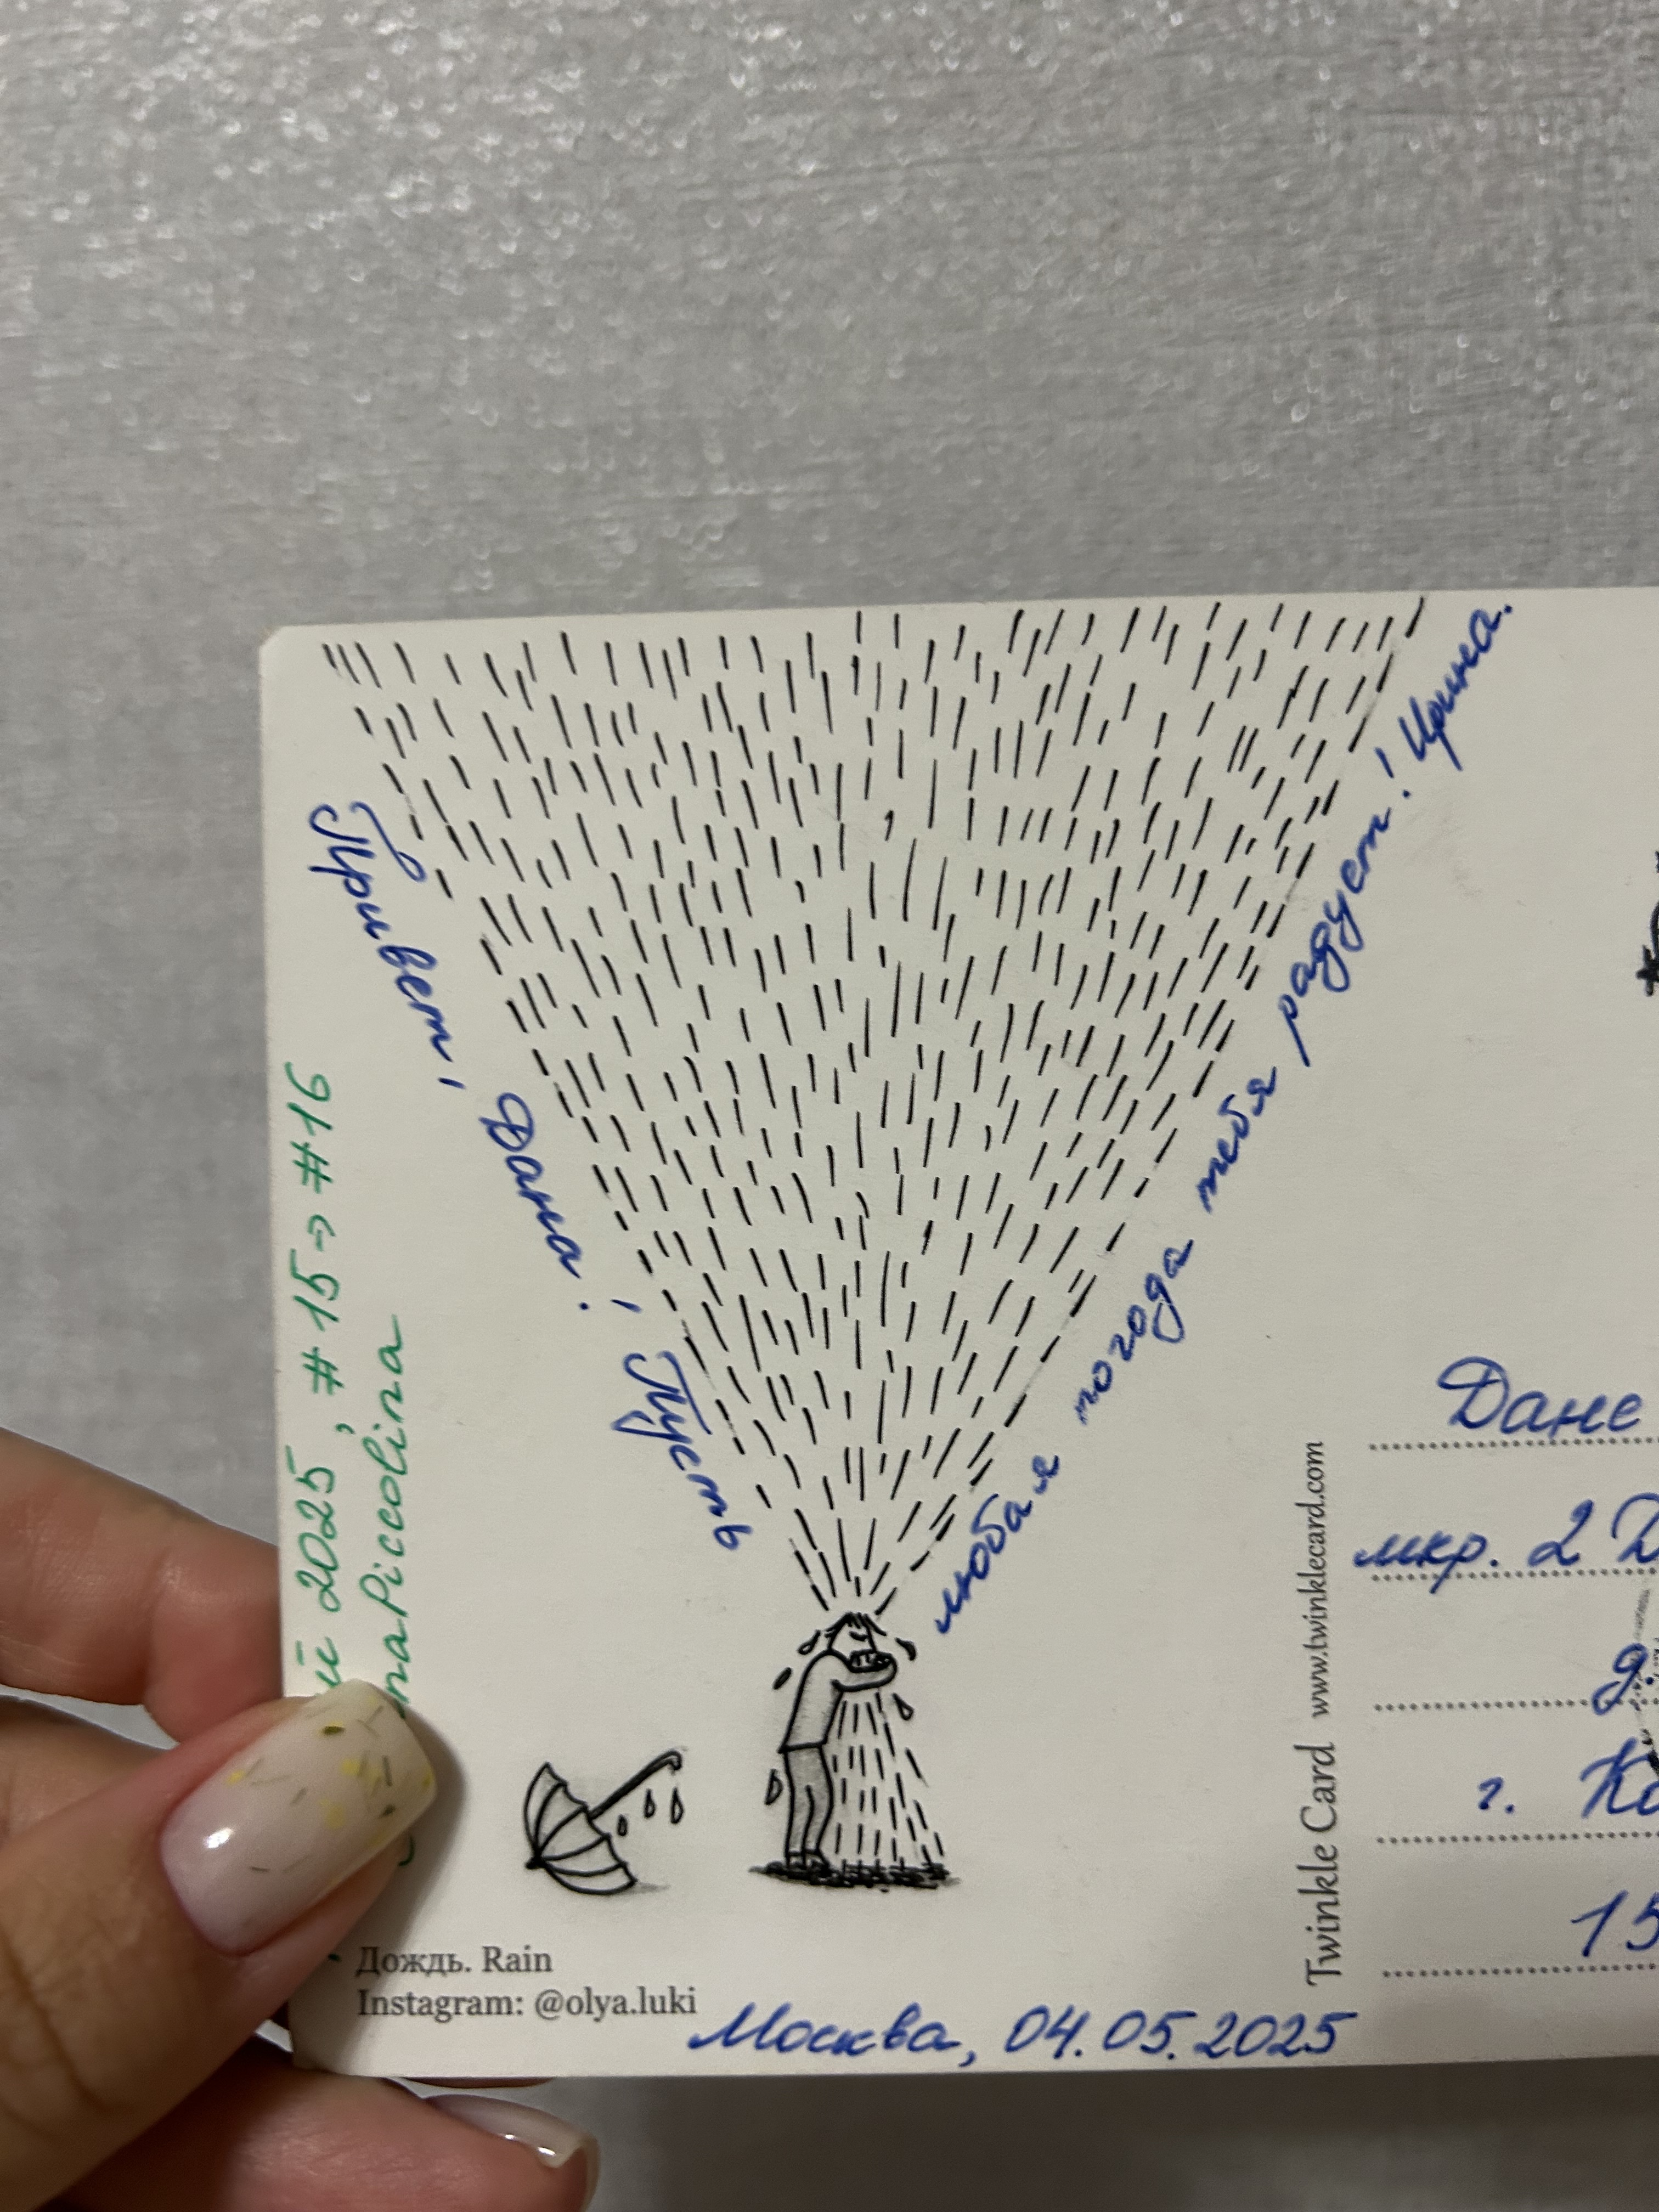 й 2025, #15 → #16
naPiccolina
Привет, Дана! Пусть
любая погода тебя радует! Ирина.
Дождь. Rain
Instagram: @olya.luki
Москва, 04.05.2025
Twinkle Card www.twinklecard.com
Дане
мкр. 2 
д.
г. Ко
15